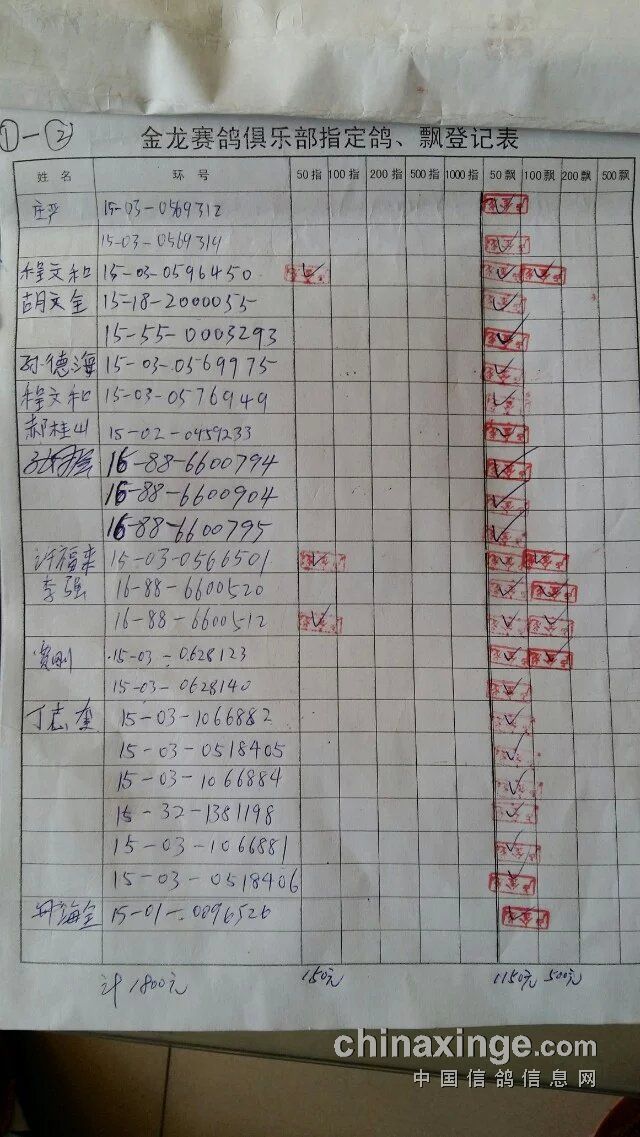 ①-②
金龙赛鸽俱乐部指定鸽、飘登记表
姓名 环号 50指 100指 200指 500指 1000指 50飘 100飘 200飘 500飘
庄严 15-03-0569312 ✓
15-03-0569314 ✓
程文和 15-03-0596450 ✓ ✓ ✓
胡文全 15-18-2000055 ✓
15-55-0003293 ✓
孙德海 15-03-0569975 ✓
程文和 15-03-0576949 ✓
郝桂山 15-02-0459233 ✓
16-88-6600794 ✓
16-88-6600904 ✓
16-88-6600795 ✓
许福来 15-03-0566501 ✓ ✓ ✓
李强 16-88-6600520 ✓ ✓
16-88-6600512 ✓ ✓ ✓
15-03-0628123 ✓ ✓
15-03-0628140 ✓
丁志奎 15-03-1066882 ✓
15-03-0518405 ✓
15-03-1066884 ✓
15-32-1381198 ✓
15-03-1066881 ✓
15-03-0518406 ✓
15-01-0096526 ✓
计1800元 150元 1150元 500元
chinaxinge.com
中国信鸽信息网